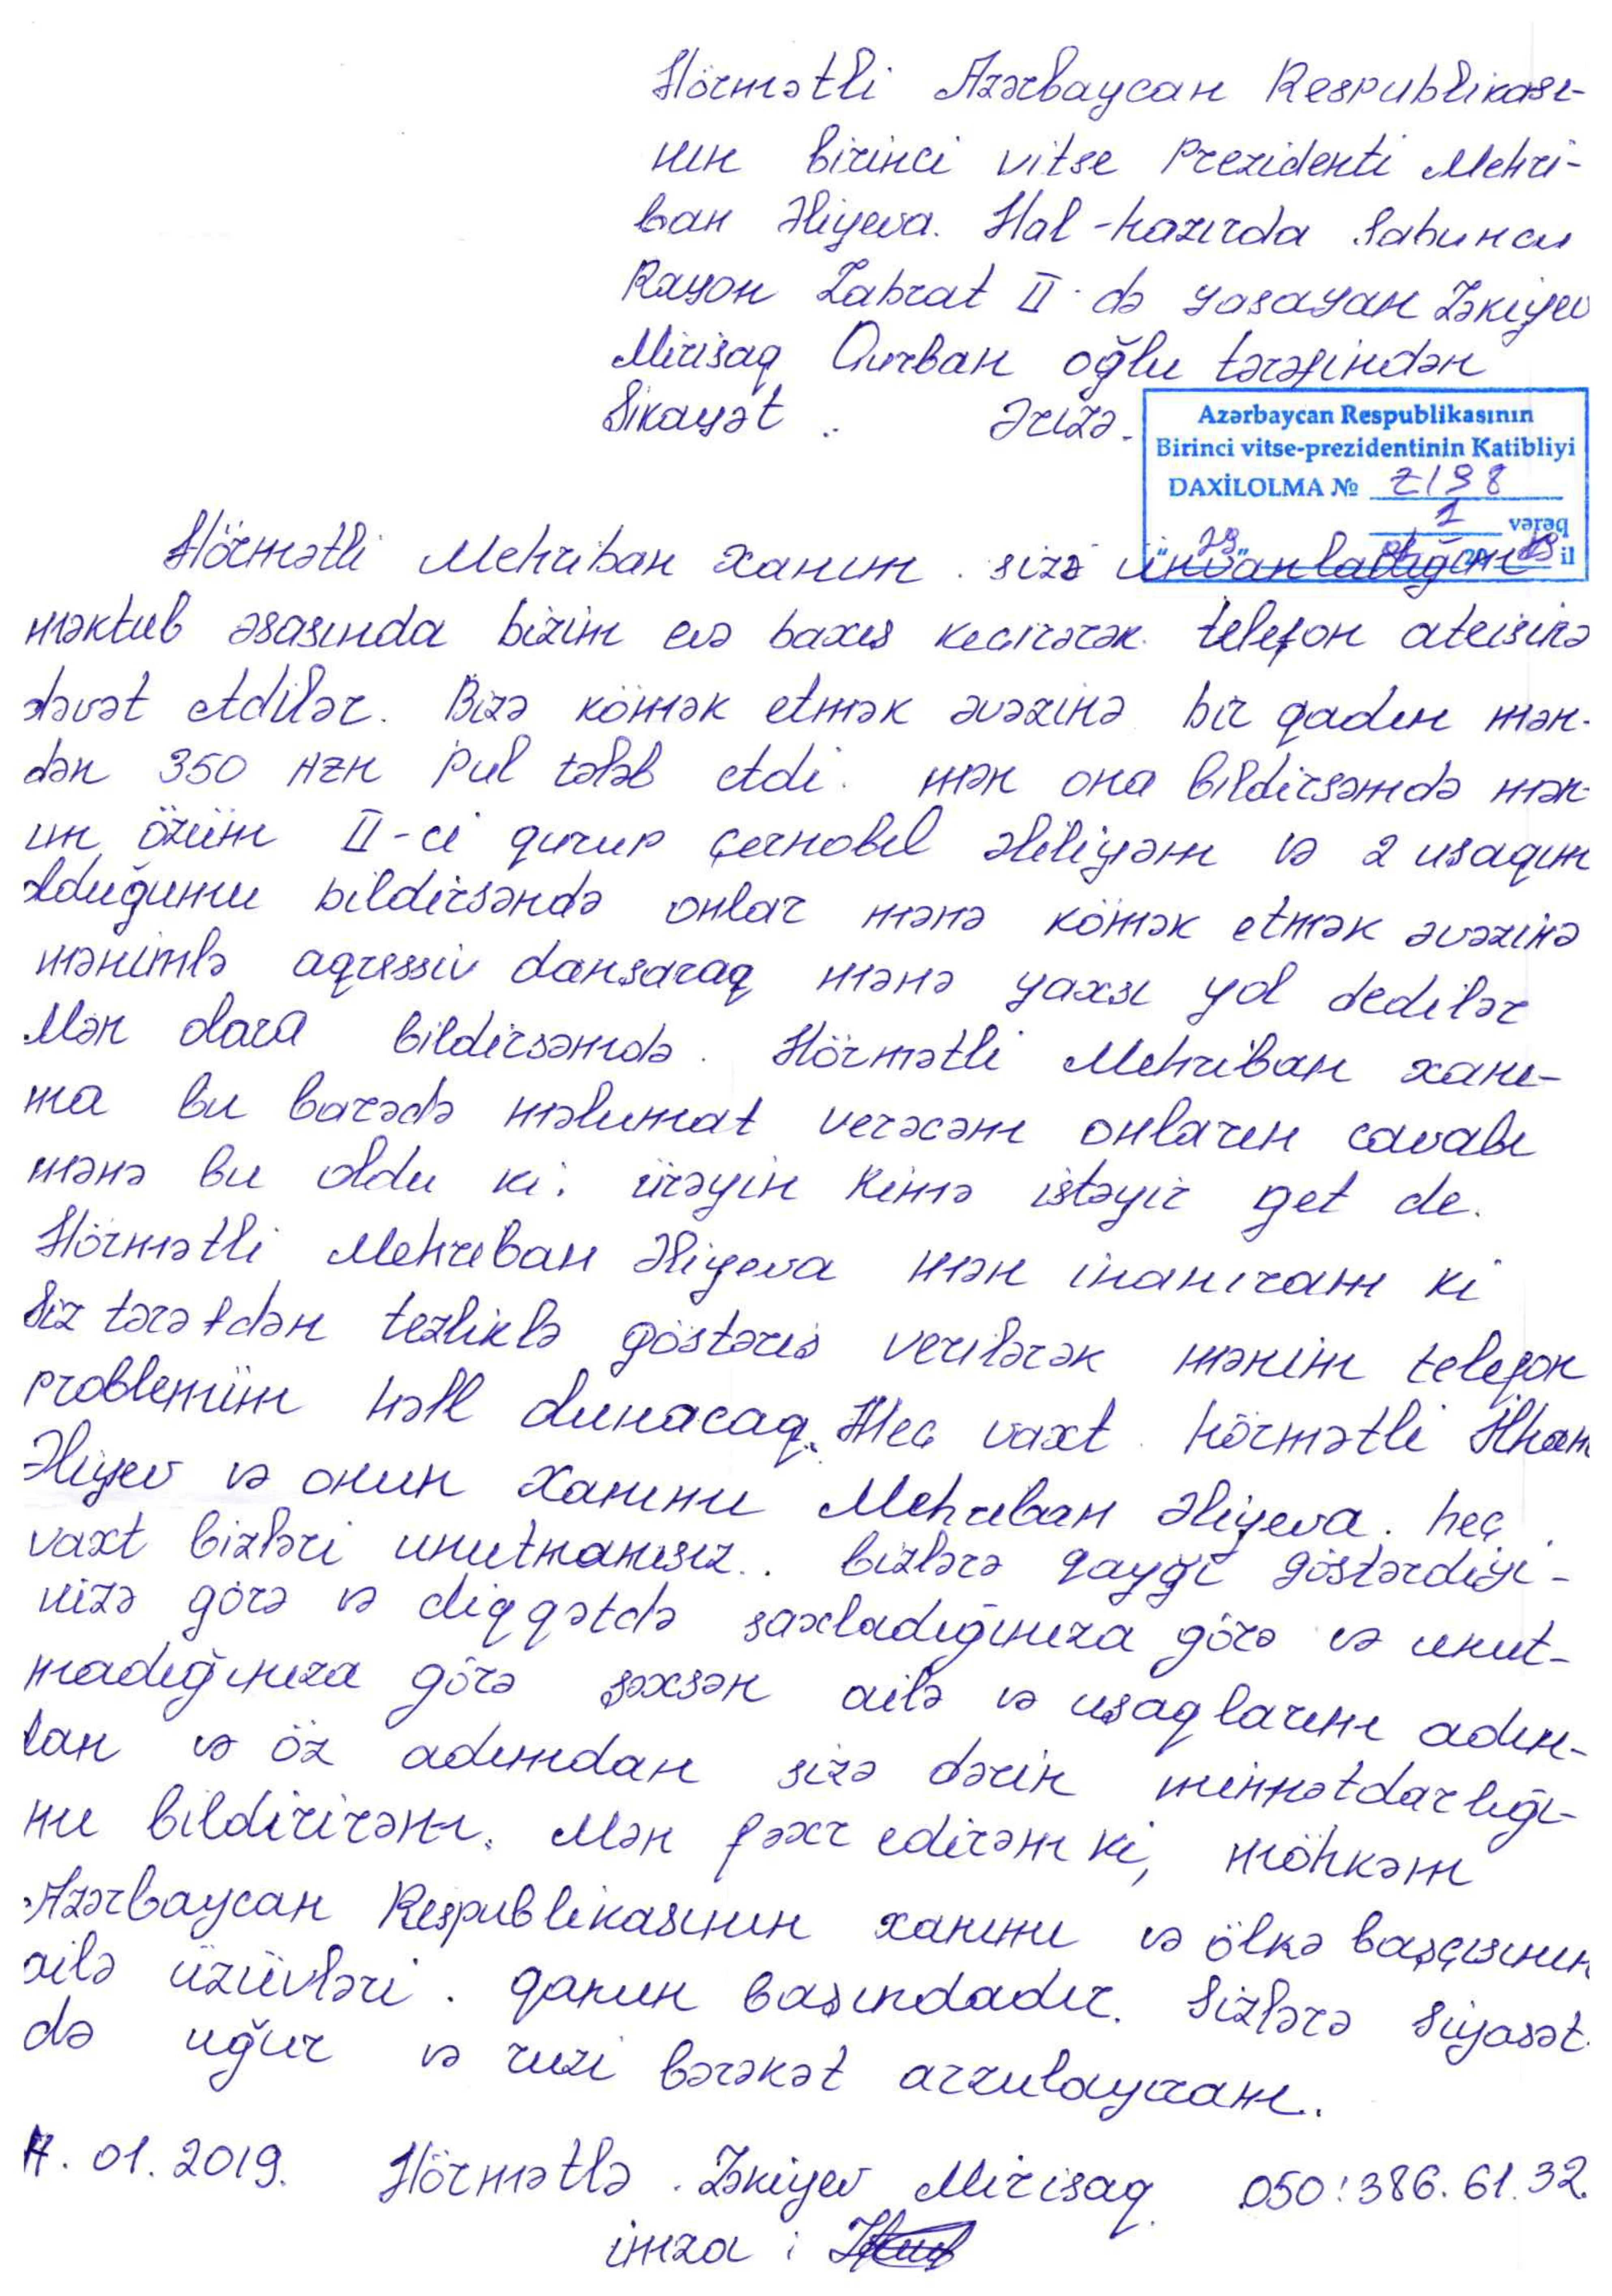 Hörmətli Azərbaycan Respublikası-
nın birinci vitse Prezidenti Mehri-
ban Əliyeva. Hal-hazırda Sabuncu
Rayon Zabrat II-də yasayan Zəkiyev
Mirisaq Qurban oğlu tərəfindən
Sikayət .. Ərizə.
Azərbaycan Respublikasının
Birinci vitse-prezidentinin Katibliyi
DAXİLOLMA №
1 vərəq
il
Hörmətli Mehriban xanım. sizə ünvanladığım
məktub əsasında bizim evə baxıs kecirərək. telefon
dəvət etdilər. Bizə kömək etmək əvəzinə bir qadın mən-
dən 350 AZN pul tələb etdi. mən ona bildirsəmdə mən-
im özüm II-ci qurup çernobıl əliliyəm və 2 usaqım
olduğumu bildirsəmdə onlar mənə kömək etmək əvəzinə
mənimlə aqressiv dansaraq mənə yaxsı yol dedilər
Mən olara bildirsəmdə. Hörmətli Mehriban xanı-
ma bu barədə məlumat verəcəm onların cavabı
mənə bu oldu ki. ürəyin kimə istəyir get de.
Hörmətli Mehriban Əliyeva mən inanıram ki
Siz tərəfdən tezliklə göstəris verilərək mənim telefon
problemim həll olunacaq. Heç vaxt hörmətli İlham
Əliyev və onun xanımı Mehriban Əliyeva. heç
vaxt bizləri unutmamısız.. bizlərə qayğı göstərdiyi-
nizə görə və diqqətdə saxladığınıza görə və unut-
madığınıza görə şəxsən ailə və uşaqlarım adın-
dan və öz adımdan sizə dərin minnətdarlığı-
mı bildirirəm. Mən fəxr edirəm ki, möhkəm
Azərbaycan Respublikasının xanımı və ölkə başçısının
ailə üzüvləri. qanun başındadır. Sizlərə siyasət-
də uğur və ruzi bərəkət arzulayıram..
01.2019. Hörmətlə. Zəkiyev Mirisaq. 050:386.61.32.
imza: